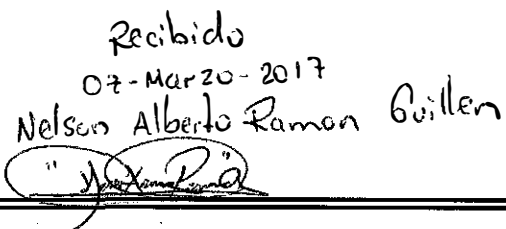 Recibido
07-Marzo-2017
Nelson Alberto Ramon Guillen